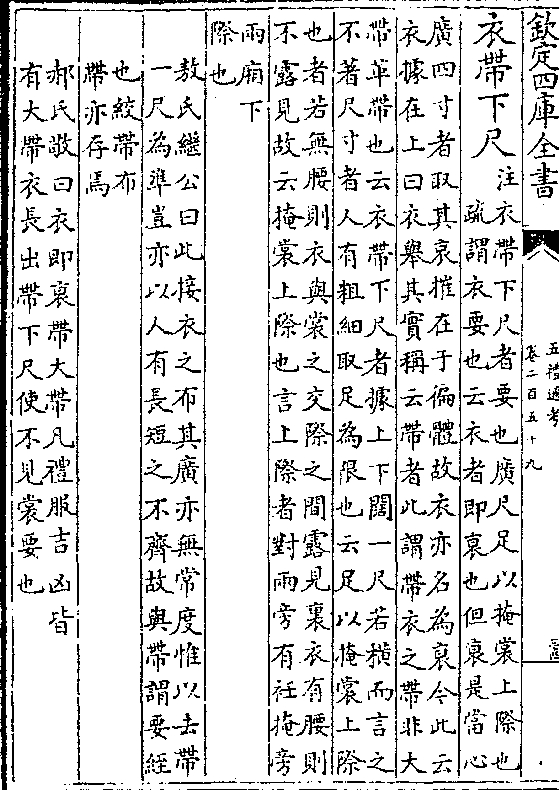 欽定四庫全書
五禮通考
卷二百五十九
衣帶下尺
注衣帶下尺者要也廣尺足以掩裳上際也
疏謂衣要也云衣者即衰也但衰是當心
廣四寸者取其哀摧在于徧體故衣亦名為衰今此云
衣據在上曰衣舉其實稱云帶者此謂帶衣之帶非大
帶革帶也云衣帶下尺者據上下闊一尺若橫而言之
不著尺寸者人有粗細取足為限也云足以掩裳上際
也者若無腰則衣與裳之交際之間露見裏衣有腰則
不露見故云掩裳上際也言上際者對兩旁有衽掩旁
兩廂下
際也
敖氏繼公曰此接衣之布其廣亦無常度惟以去帶
一尺為準豈亦以人有長短之不齊故與帶謂要絰
也絞帶布
帶亦存焉
郝氏敬曰衣即衰帶大帶凡禮服吉凶皆
有大帶衣長出帶下尺使不見裳要也